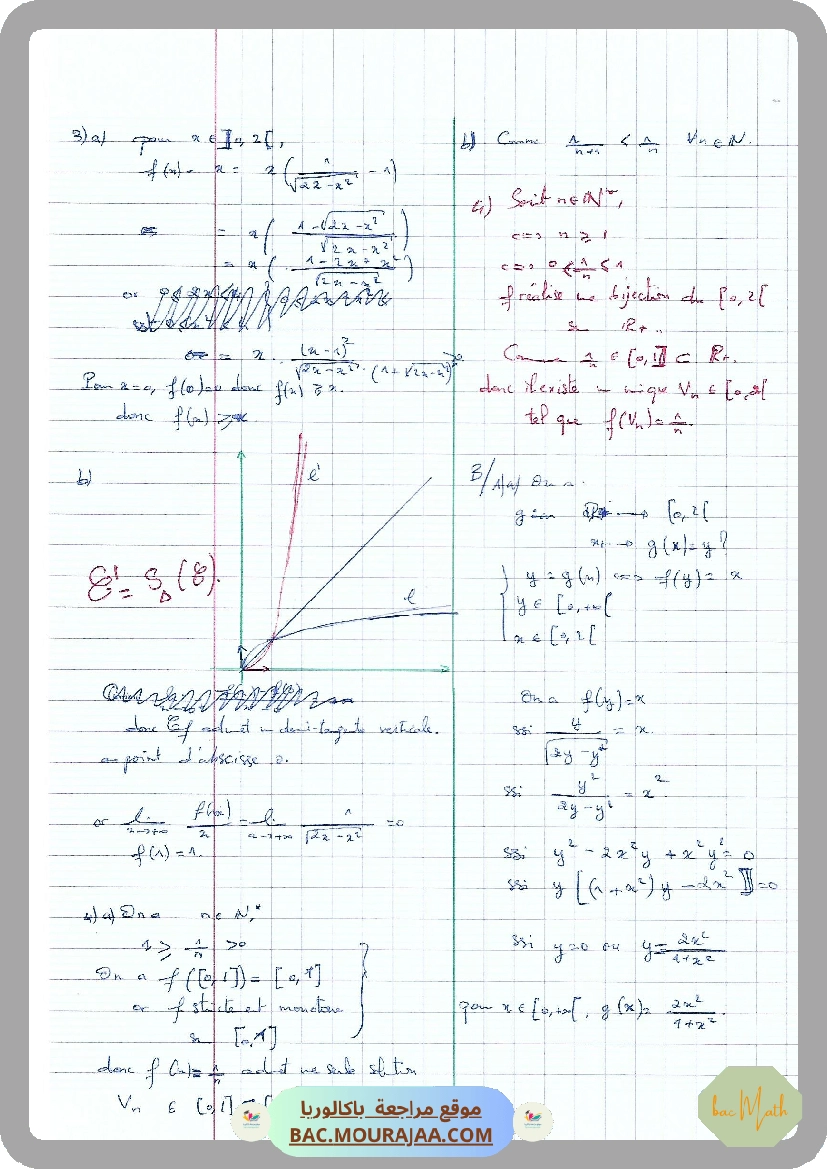 3) a) pour x ∈ ]0, 2[,
f(x) - x = x ( 1/√(2x - x²) - 1 )
= x ( (1 - √(2x - x²)) / √(2x - x²) )
= x ( (1 - 2x + x²) / √(2x - x²) )
or
= x . (x-1)² / ( √(2x - x²) . (1 + √(2x - x²)) )
Pour x = 0, f(0) = 0 donc f(x) ≥ x.
donc f(x) ≥ x
b)
C'
C' = S_Δ(C).
C
donc Cf admet un demi-tangente verticale.
au point d'abscisse 0.
or lim x→+∞ f(x)/x = lim x→+∞ 1/√(2x - x²) = 0
f(1) = 1.
4) a) On a n ∈ N*,
1 ≥ 1/n > 0
On a f([0,1]) = [0,1]
or f stricte et monotone
sur [0,1]
donc f(x) = 1/n admet une seule solution
Vn ∈ [0,1]
b) Comme 1/(n+1) < 1/n ∀n ∈ N.
4) Soit n ∈ N*,
<=> n ≥ 1
<=> 0 < 1/n ≤ 1
f réalise une bijection de [0,2[
sur R+.
Comme 1/n ∈ [0,1] ⊂ R+.
donc il existe un unique Vn ∈ [0,2[
tel que f(Vn) = 1/n.
B/ 1) a) On a
g → [0,2[
x → g(x) = y ?
y = g(x) <=> f(y) = x
y ∈ [0,+∞[
x ∈ [0,2[
On a f(y) = x
ssi y/√(2y - y²) = x.
ssi y²/(2y - y²) = x²
ssi y² - 2x²y + x²y² = 0
ssi y [(1 + x²) y - 2x²] = 0
ssi y = 0 ou y = 2x²/(1+x²)
pour x ∈ [0,+∞[, g(x) = 2x²/(1+x²).
موقع مراجعة باكالوريا
BAC.MOURAJAA.COM
bac Math